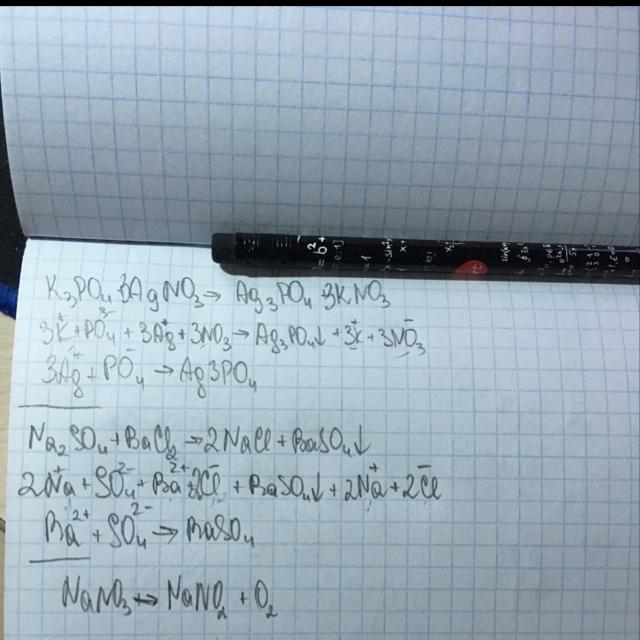 K₃PO₄ 3AgNO₃ → Ag₃PO₄ 3KNO₃
3K⁺ + PO₄³⁻ + 3Ag⁺ + 3NO₃ → Ag₃PO₄↓ + 3K⁺ + 3NO₃⁻
3Ag⁺ + PO₄⁻ → Ag3PO₄
Na₂SO₄ + BaCl₂ → 2NaCl + BaSO₄↓
2Na⁺ + SO₄²⁻ + Ba²⁺ + 2Cl⁻ + BaSO₄↓ + 2Na⁺ + 2Cl⁻
Ba²⁺ + SO₄²⁻ → BaSO₄
NaNO₃ ↔ NaNO₂ + O₂